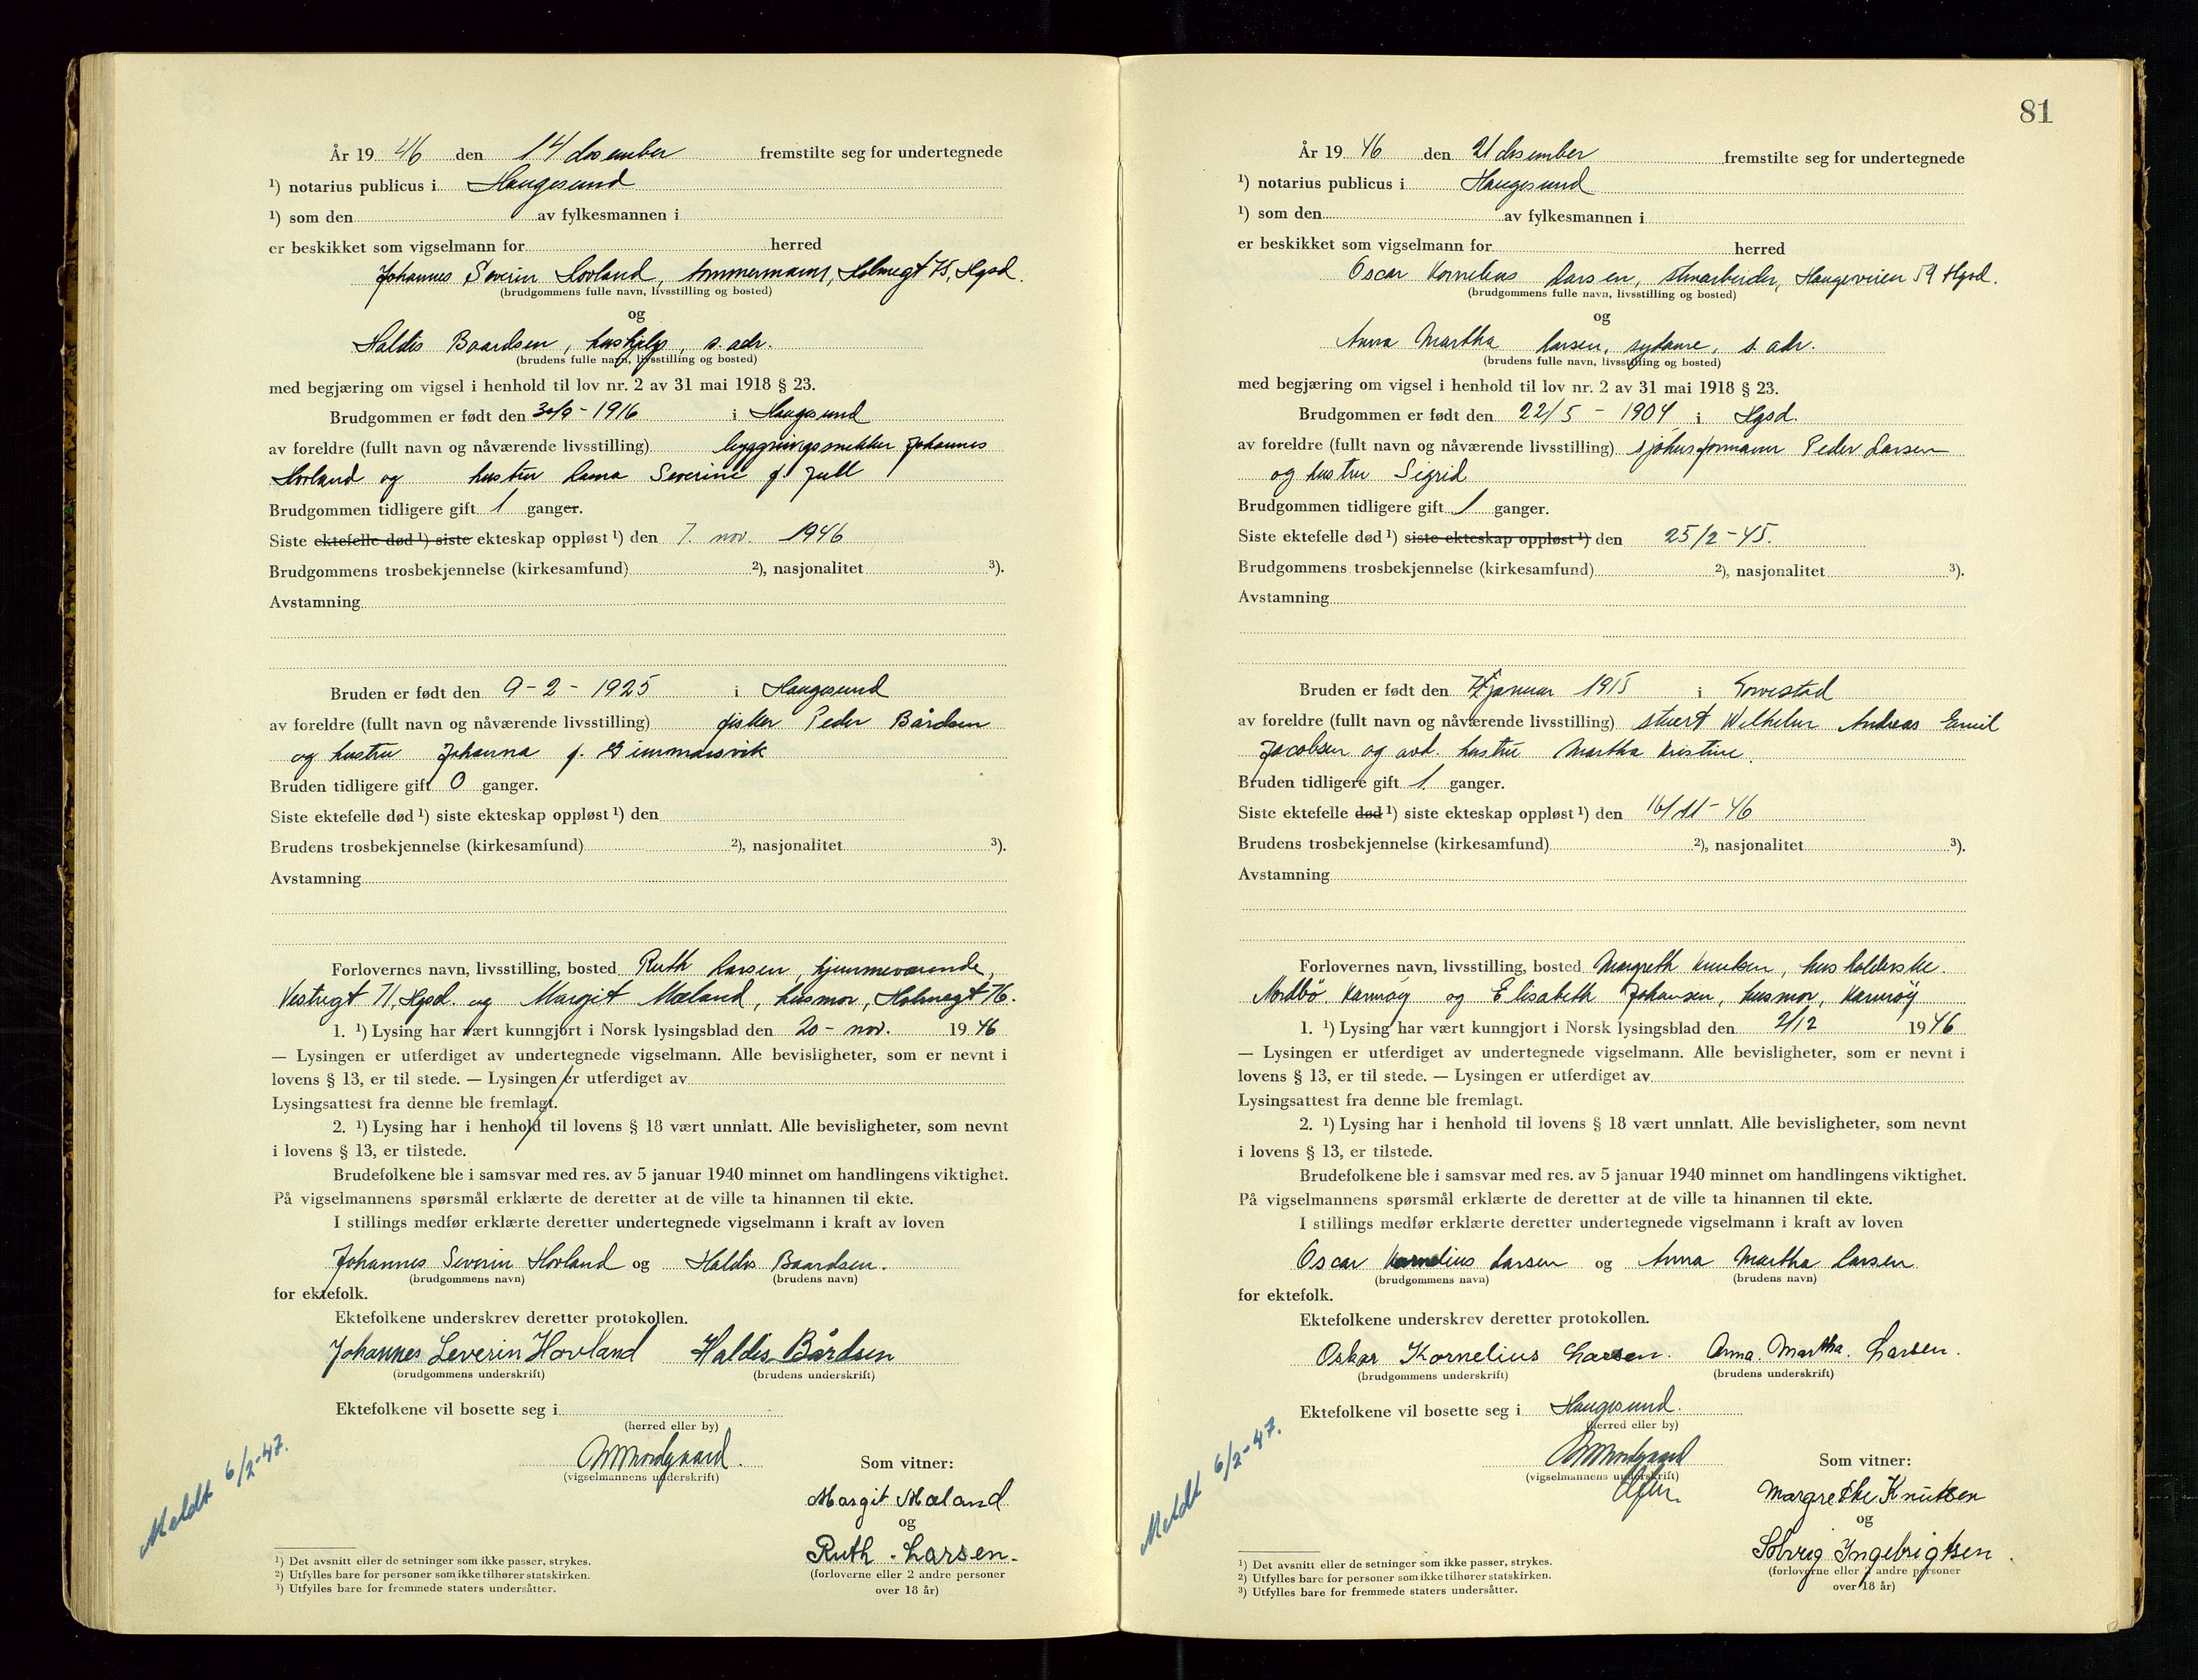 År 19 46 den 14 desember fremstilte seg for undertegnede
¹) notarius publicus i Haugesund
¹) som den av fylkesmannen i
er beskikket som vigselmann for herred
Johannes Severin Hovland, tømmermann, Holmegt 75, Hgsd.
(brudgommens fulle navn, livsstilling og bosted)
og
Haldis Baardsen, hushjelp, s. adr.
(brudens fulle navn, livsstilling og bosted)
med begjæring om vigsel i henhold til lov nr. 2 av 31 mai 1918 § 23.
Brudgommen er født den 30/9 - 1916 i Haugesund
av foreldre (fullt navn og nåværende livsstilling) byggningssnekker Johannes
Hovland og hustru Severine f. Jull
Brudgommen tidligere gift 1 ganger.
Siste ektefelle død ¹) siste ekteskap oppløst ¹) den 7. nov. 1946
Brudgommens trosbekjennelse (kirkesamfund) ²), nasjonalitet ³).
Avstamning
Bruden er født den 9 - 2 - 1925 i Haugesund
av foreldre (fullt navn og nåværende livsstilling) fisker Peder Bårdsen
og hustru Johanna f. Gimmarsvik
Bruden tidligere gift 0 ganger.
Siste ektefelle død ¹) siste ekteskap oppløst ¹) den
Brudens trosbekjennelse (kirkesamfund) ²), nasjonalitet ³).
Avstamning
Forlovernes navn, livsstilling, bosted Ruth Larsen, hjemmeværende,
Vestregt 71, Hgsd. og Margit Mæland, husmor, Holmegt 76.
1. ¹) Lysing har vært kunngjort i Norsk lysingsblad den 20 - nov. 19 46
— Lysingen er utferdiget av undertegnede vigselmann. Alle bevisligheter, som er nevnt i
lovens § 13, er til stede. — Lysingen er utferdiget av
Lysingsattest fra denne ble fremlagt.
2. ¹) Lysing har i henhold til lovens § 18 vært unnlatt. Alle bevisligheter, som nevnt
i lovens § 13, er tilstede.
Brudefolkene ble i samsvar med res. av 5 januar 1940 minnet om handlingens viktighet.
På vigselmannens spørsmål erklærte de deretter at de ville ta hinannen til ekte.
I stillings medfør erklærte deretter undertegnede vigselmann i kraft av loven
Johannes Severin Hovland og Haldis Baardsen.
(brudgommens navn) (brudens navn)
for ektefolk.
Ektefolkene underskrev deretter protokollen.
Johannes Severin Hovland Haldis Bårdsen
(brudgommens underskrift) (brudens underskrift)
Ektefolkene vil bosette seg i
(herred eller by)
(vigselmannens underskrift)
Meldt 6/2-47.
Som vitner:
Margit Mæland
og
Ruth Larsen.
(forloverne eller 2 andre personer
over 18 år)
¹) Det avsnitt eller de setninger som ikke passer, strykes.
²) Utfylles bare for personer som ikke tilhører statskirken.
³) Utfylles bare for fremmede staters undersåtter.
81
År 19 46 den 21 desember fremstilte seg for undertegnede
¹) notarius publicus i Haugesund
¹) som den av fylkesmannen i
er beskikket som vigselmann for herred
Oscar Kornelius Larsen, Haugeveien 59 Hgsd.
(brudgommens fulle navn, livsstilling og bosted)
og
Anna Martha Larsen, sydame, s. adr.
(brudens fulle navn, livsstilling og bosted)
med begjæring om vigsel i henhold til lov nr. 2 av 31 mai 1918 § 23.
Brudgommen er født den 22/5 - 1904 i Hgsd.
av foreldre (fullt navn og nåværende livsstilling) sjøhusformann Peder Larsen
og hustru Sigrid
Brudgommen tidligere gift 1 ganger.
Siste ektefelle død ¹) siste ekteskap oppløst ¹) den 25/2 - 45.
Brudgommens trosbekjennelse (kirkesamfund) ²), nasjonalitet ³).
Avstamning
Bruden er født den januar 1915 i Torvestad
av foreldre (fullt navn og nåværende livsstilling) stuert Wilhelm Andreas Emil
Jacobsen og avd. hustru Martha Kristine.
Bruden tidligere gift 1. ganger.
Siste ektefelle død ¹) siste ekteskap oppløst ¹) den 16/11 - 46
Brudens trosbekjennelse (kirkesamfund) ²), nasjonalitet ³).
Avstamning
Forlovernes navn, livsstilling, bosted Margreth Knutsen, husholderske.
Nordbø, Karmøy og Elisabeth Johansen, husmor, Karmøy
1. ¹) Lysing har vært kunngjort i Norsk lysingsblad den 2/12 19 46
— Lysingen er utferdiget av undertegnede vigselmann. Alle bevisligheter, som er nevnt i
lovens § 13, er til stede. — Lysingen er utferdiget av
Lysingsattest fra denne ble fremlagt.
2. ¹) Lysing har i henhold til lovens § 18 vært unnlatt. Alle bevisligheter, som nevnt
i lovens § 13, er tilstede.
Brudefolkene ble i samsvar med res. av 5 januar 1940 minnet om handlingens viktighet.
På vigselmannens spørsmål erklærte de deretter at de ville ta hinannen til ekte.
I stillings medfør erklærte deretter undertegnede vigselmann i kraft av loven
Oscar Kornelius Larsen og Anna Martha Larsen
(brudgommens navn) (brudens navn)
for ektefolk.
Ektefolkene underskrev deretter protokollen.
Oskar Kornelius Larsen. Anna. Martha. Larsen.
(brudgommens underskrift) (brudens underskrift)
Ektefolkene vil bosette seg i Haugesund.
(herred eller by)
(vigselmannens underskrift)
Meldt 6/2-47.
Som vitner:
Margrethe Knutsen
og
Solveig Ingebrigtsen.
(forloverne eller 2 andre personer
over 18 år)
¹) Det avsnitt eller de setninger som ikke passer, strykes.
²) Utfylles bare for personer som ikke tilhører statskirken.
³) Utfylles bare for fremmede staters undersåtter.